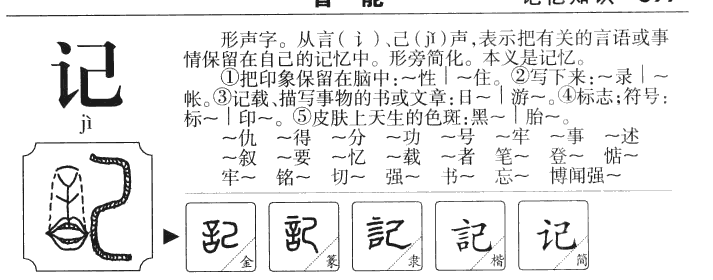 记
jì
形声字。从言(讠)、己(jǐ)声,表示把有关的言语或事
情保留在自己的记忆中。形旁简化。本义是记忆。
①把印象保留在脑中:~性|~住。②写下来:~录|~
帐。③记载、描写事物的书或文章:日~|游~。④标志;符号:
标~|印~。⑤皮肤上天生的色斑:黑~|胎~。
~仇 ~得 ~分 ~功 ~号 ~牢 ~事 ~述
~叙 ~要 ~忆 ~载 ~者 笔~ 登~ 惦~
牢~ 铭~ 切~ 强~ 书~ 忘~ 博闻强~
記 金
記 篆
記 隶
記 楷
记 简